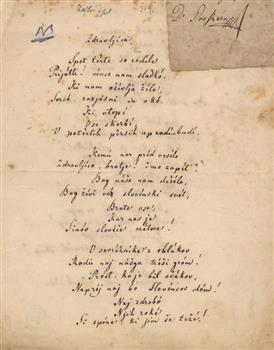 Dr Prešérin
Zdravljica.
Spet terte so rodile
Prijatli! vince nam sladkó,
Ki nam oživlja žile,
Serce razjásni in okó,
Ki utopi
Vse skerbi,
V potertih persih up budi.
Komú nar pred veselo
Zdravljico, bratje! čmo zapét'?
Bog našo nam deželo,
Bog živi ves slovenski svet,
Brate vse,
Kar nas je
Sinóv slovéče matere!
V sovražnike z oblákov
Rodú naj našga tréši gróm!
Prost, ko je bil očákov,
Naprej naj bo Slovencov dom!
Naj zdrobé
Njih roké
Si spone, ki jim še težé!